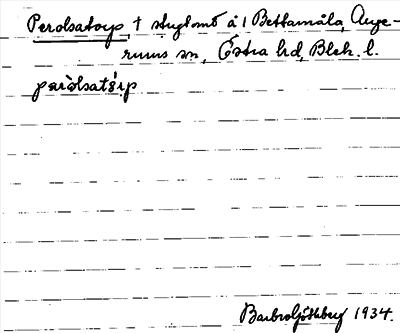 Perolsatorp † stugtomt å 1 Bettamåla, Auge-
rums sn, Östra hd, Blek. l.
peròlsatórp
Barbro Göthberg 1934.